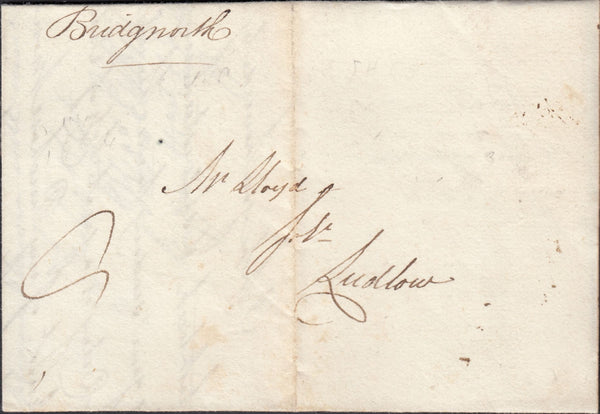 Bridgnorth
Mr Lloyd
Ludlow